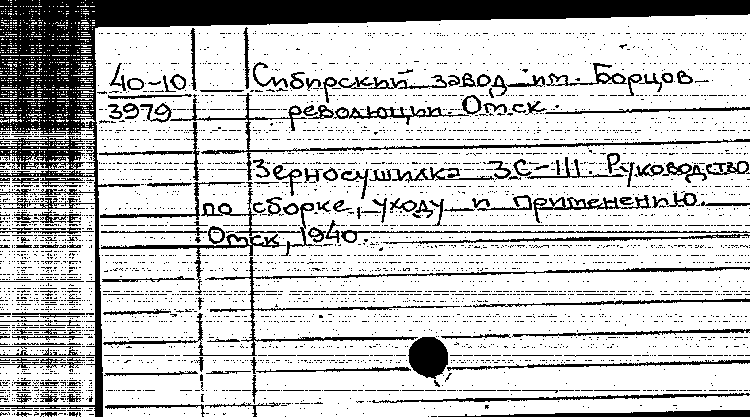 40-10 Сибирский завод им. Борцов
3979 революции. Омск.
Зерносушилка ЗС-III. Руководство
по сборке, уходу и применению.
Омск, 1940.